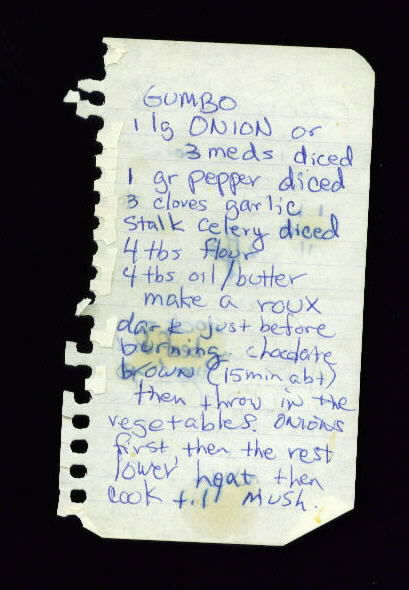 GUMBO
1 lg ONION or
3 meds diced
1 gr pepper diced
3 cloves garlic
Stalk celery diced
4 tbs flour
4 tbs oil/butter
make a roux
dark just before
burning. chocolate
brown (15min abt)
then throw in the
vegetables. ONIONS
first, then the rest
lower heat then
cook till MUSH.